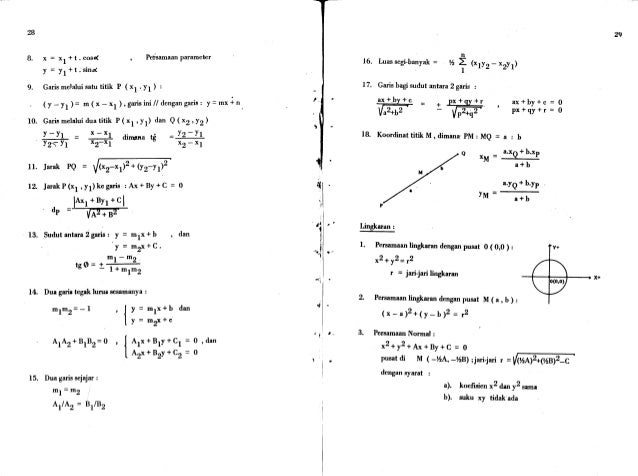 28
8. x = x₁ + t . cosα , Persamaan parameter
y = y₁ + t . sinα
9. Garis melalui satu titik P ( x₁ , y₁ ) :
( y – y₁ ) = m ( x – x₁ ) , garis ini // dengan garis : y = mx + n
10. Garis melalui dua titik P ( x₁ , y₁ ) dan Q ( x₂ , y₂ )
(y – y₁)/(y₂ – y₁) = (x – x₁)/(x₂ – x₁) dimana tg = (y₂ – y₁)/(x₂ – x₁)
11. Jarak PQ = √((x₂–x₁)² + (y₂–y₁)²)
12. Jarak P (x₁ , y₁) ke garis : Ax + By + C = 0
dp = |Ax₁ + By₁ + C| / √(A² + B²)
13. Sudut antara 2 garis : y = m₁x + b , dan
y = m₂x + C .
tg Ø = ± (m₁ – m₂)/(1 + m₁m₂)
14. Dua garis tegak lurus sesamanya :
m₁m₂ = – 1 , { y = m₁x + b dan
y = m₂x + c
A₁A₂ + B₁B₂ = 0 , { A₁x + B₁y + C₁ = 0 , dan
A₂x + B₂y + C₂ = 0
15. Dua garis sejajar :
m₁ = m₂
A₁/A₂ = B₁/B₂
29
16. Luas segi-banyak = ½ Σ (x₁y₂ – x₂y₁)
n
1
17. Garis bagi sudut antara 2 garis :
(ax + by + c)/√(a²+b²) = ± (px + qy + r)/√(p²+q²) , ax + by + c = 0
px + qy + r = 0
18. Koordinat titik M , dimana PM : MQ = a : b
Q
M
P
xM = (a.xQ + b.xp)/(a + b)
yM = (a.yQ + b.yp)/(a + b)
Lingkaran :
1. Persamaan lingkaran dengan pusat 0 ( 0,0 ) :
x² + y² = r²
r = jari-jari lingkaran
Y+
X+
0(0,0)
2. Persamaan lingkaran dengan pusat M ( a , b ) :
( x – a )² + ( y – b )² = r²
3. Persamaan Normal :
x² + y² + Ax + By + C = 0
pusat di M ( –½A, –½B) ; jari-jari r = √((½A)²+(½B)²–C)
dengan syarat :
a). koefisien x² dan y² sama
b). suku xy tidak ada